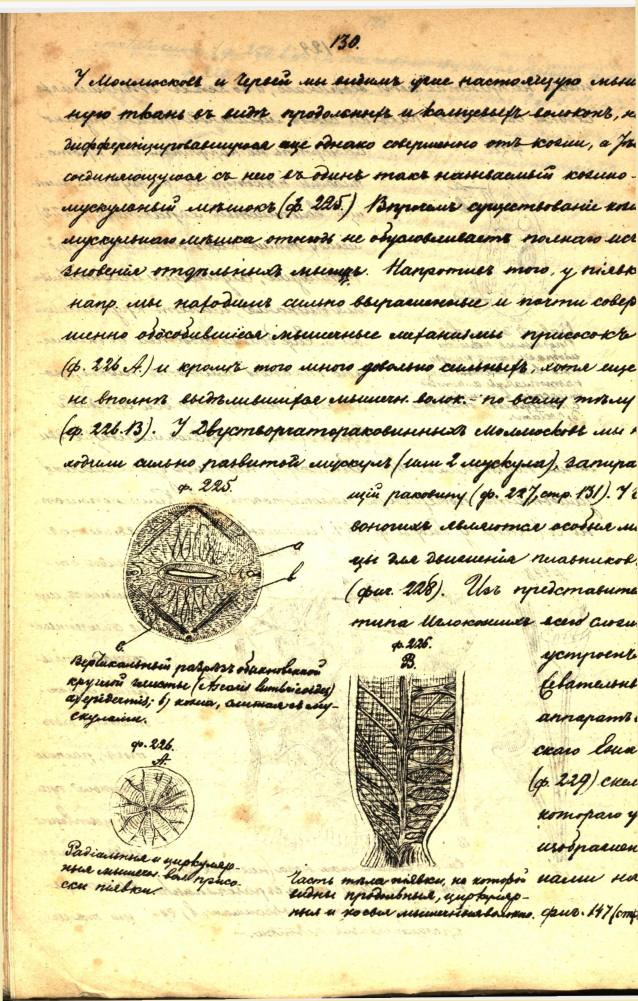 130.
У Моллюсковъ и Червей мы видимъ уже настоящую мыш
ную ткань въ видѣ продольныхъ и кольцевыхъ волоконъ, н
дифференцировавшуюся еще однако совершенно отъ кожи, а
соединяющуюся съ нею въ одинъ такъ называемый кожно-
мускульный мѣшокъ (ф. 225.) Впрочемъ существованіе кож
мускульнаго мѣшка отнюдь не обусловливаетъ полнаго исч
зновенія отдѣльныхъ мышцъ. Напротивъ того, у піявк
напр. мы находимъ сильно выраженные и почти совер
шенно обособившіеся мышечные механизмы присосокъ
(ф. 226 А.) и кромѣ того много довольно сильныхъ, хотя еще
не вполнѣ выдѣлившихся мышечн. волок. по всему тѣлу
(ф. 226. В). У Двустворчатораковинныхъ Моллюсковъ мы н
ходили сильно развитой мускулъ (или 2 мускула), запира
щій раковину (ф. 227, стр. 131). У
воногихъ являются особые м
цы для движенія плавниковъ
(фиг. 228). Изъ представите
типа Иглокожихъ всего сложн
устроенъ
жевательны
аппаратъ
скаго Ежа
(ф. 229) скел
котораго у
изображен
нами на
фиг. 147 (стр
ф. 225.
а
в
б.
Вертикальный разрѣзъ обыкновенной
круглой глисты (Ascaris lumbricoides)
а) epidermis; б) кожа, слитая съ му-
скулами.
ф. 226.
А
Радіальныя и циркуляр-
ныя мышечн. вол. присо-
ски піявки.
ф. 226.
В.
Часть тѣла піявки, на которой
видны продольныя, циркуляр-
ныя и косыя мышечныя волокна.